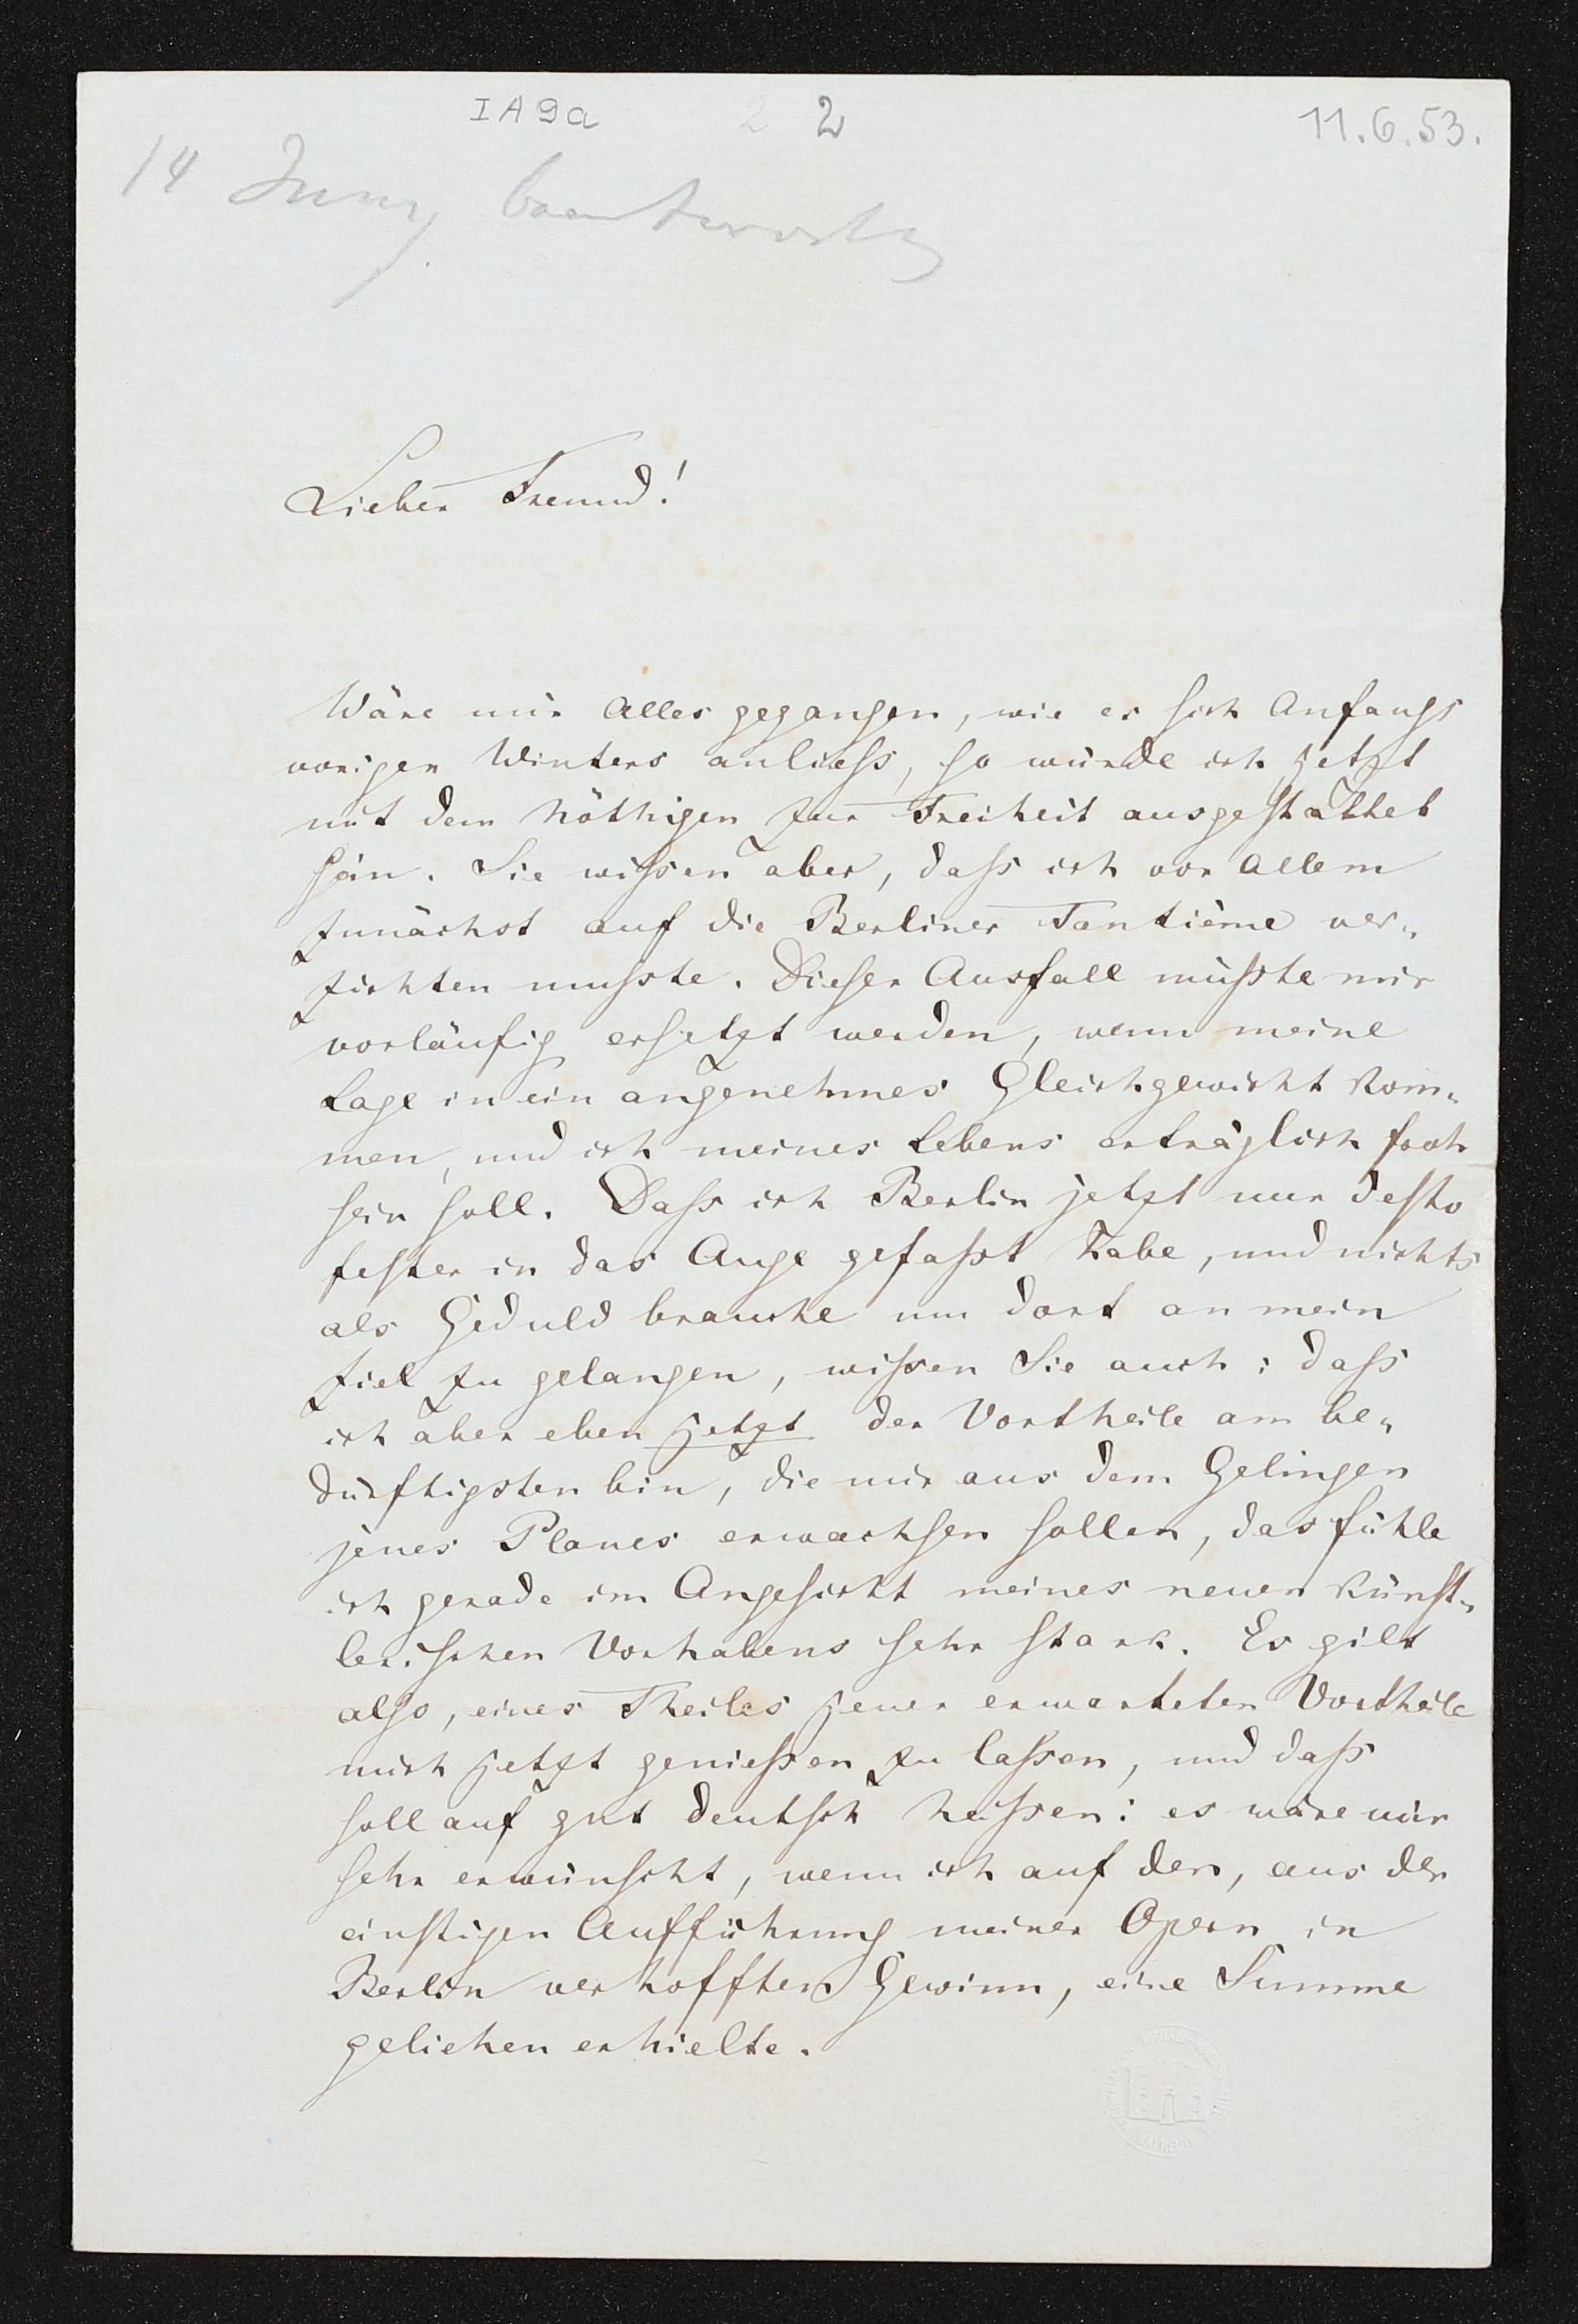 IA9a 2 2 11.6.53.
14 Juny beantwortet
Lieber Freund!
Wäre mir Alles gegangen, wie es sich Anfangs
vorigen Winters anliess, so würde ich jetzt
mit dem Nöthigen zur Freiheit ausgestattet
sein. Sie wissen aber, dass ich vor Allem
zunächst auf die Berliner Tantième ver„
zichten musste. Dieser Ausfall müsste mir
vorläufig ersetzt werden, wenn meine
Lage in ein angenehmes Gleichgewicht kom„
men, und ich meines Lebens erträglich froh
sein soll. Dass ich Berlin jetzt nur desto
fester in das Auge gefasst habe, und nichts
als Geduld brauche um dort an mein
Ziel zu gelangen, wissen Sie auch: dass
ich aber eben jetzt der Vortheile am be„
dürftigsten bin, die mir aus dem Gelingen
jenes Planes erwachsen sollen, das fühle
ich gerade im Angesicht meines neuen künst„
lerischen Vorhabens sehr stark. Es gilt
also, eines Theiles jener erwarteten Vortheile
mich jetzt geniessen zu lassen, und dass
soll auf gut deutsch heissen: es wäre mir
sehr erwünscht, wenn ich auf den, aus der
einstigen Aufführung meiner Opern in
Berlin verhofften Gewinn, eine Summe
geliehen erhielte.